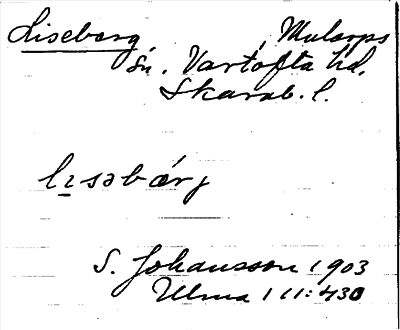 Liseberg, Mularps
sn. Vartofta hd.
Skarab. l.
lɪsəbærj
S. Johansson 1903
Ulma 111:430